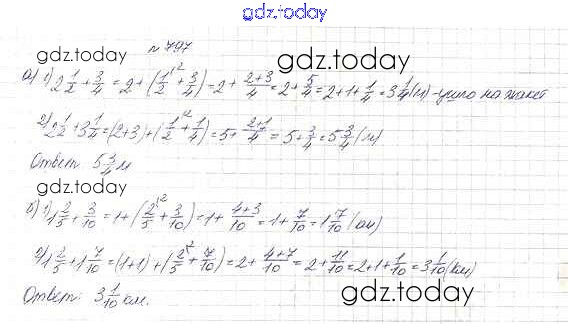 gdz.today
№ 797
gdz.today gdz.today
а) 1) 2 1/2 + 3/4 = 2 + (1/2 \2 + 3/4) = 2 + (2+3)/4 = 2 + 5/4 = 2 + 1 + 1/4 = 3 1/4 (м) - ушло на жакет
2) 2 1/2 + 3 1/4 = (2+3) + (1/2 \2 + 1/4) = 5 + (2+1)/4 = 5 + 3/4 = 5 3/4 (м)
Ответ: 5 3/4 м
gdz.today
б) 1) 1 2/5 + 3/10 = 1 + (2/5 \2 + 3/10) = 1 + (4+3)/10 = 1 + 7/10 = 1 7/10 (км)
2) 1 2/5 + 1 7/10 = (1+1) + (2/5 \2 + 7/10) = 2 + (4+7)/10 = 2 + 11/10 = 2 + 1 + 1/10 = 3 1/10 (км)
Ответ: 3 1/10 км.
gdz.today